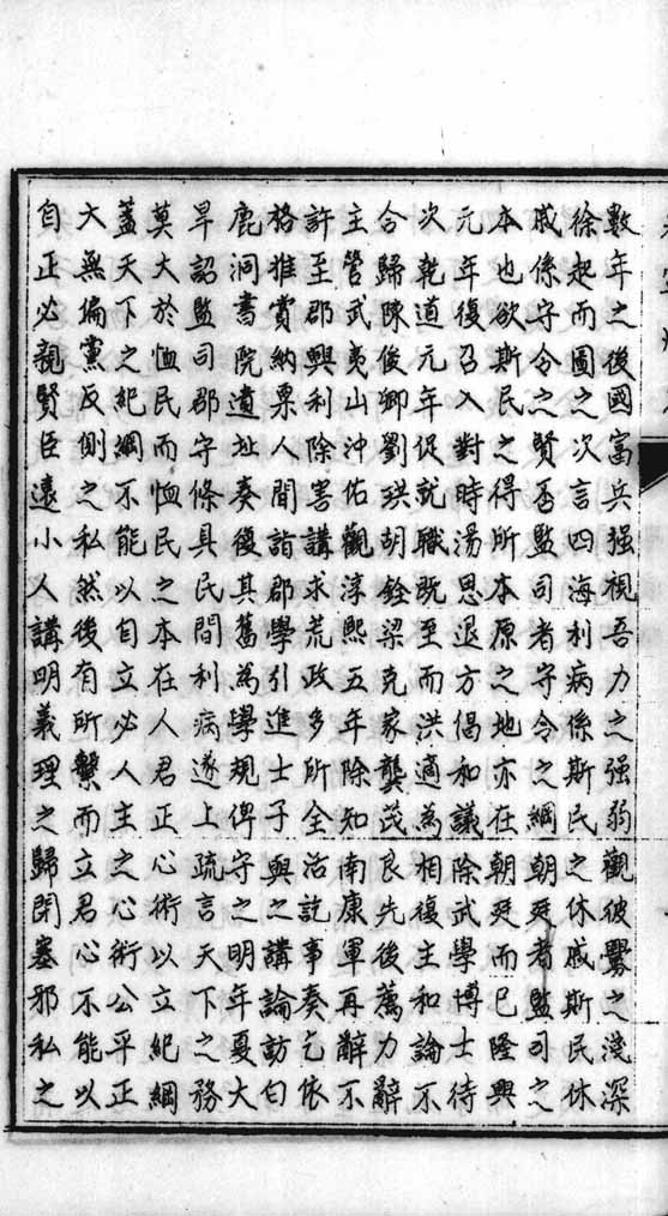 數年之後國富兵强視吾力之强弱觀彼釁之淺深
徐起而圖之次言四海利病係斯民之休戚斯民休
戚係守令之賢否監司者守令之綱朝廷者監司之
本也欲斯民之得所本原之地亦在朝廷而已隆興
元年復召入對時湯思退方倡和議除武學博士待
次乾道元年促就職既至而洪適為相復主和論不
合歸陳俊卿劉珙胡銓梁克家龔茂良先後薦力辭
主管武夷山沖佑觀淳熙五年除知南康軍再辭不
許至郡興利除害講求荒政多所全活訖事奏乞依
格推賞納粟人間詣郡學引進士子與之講論訪白
鹿洞書院遺址奏復其舊為學規俾守之明年夏大
旱詔監司郡守條具民間利病遂上疏言天下之務
莫大於恤民而恤民之本在人君正心術以立紀綱
蓋天下之紀綱不能以自立必人主之心術公平正
大無偏黨反側之私然後有所繫而立君心不能以
自正必親賢臣遠小人講明義理之歸閉塞邪私之